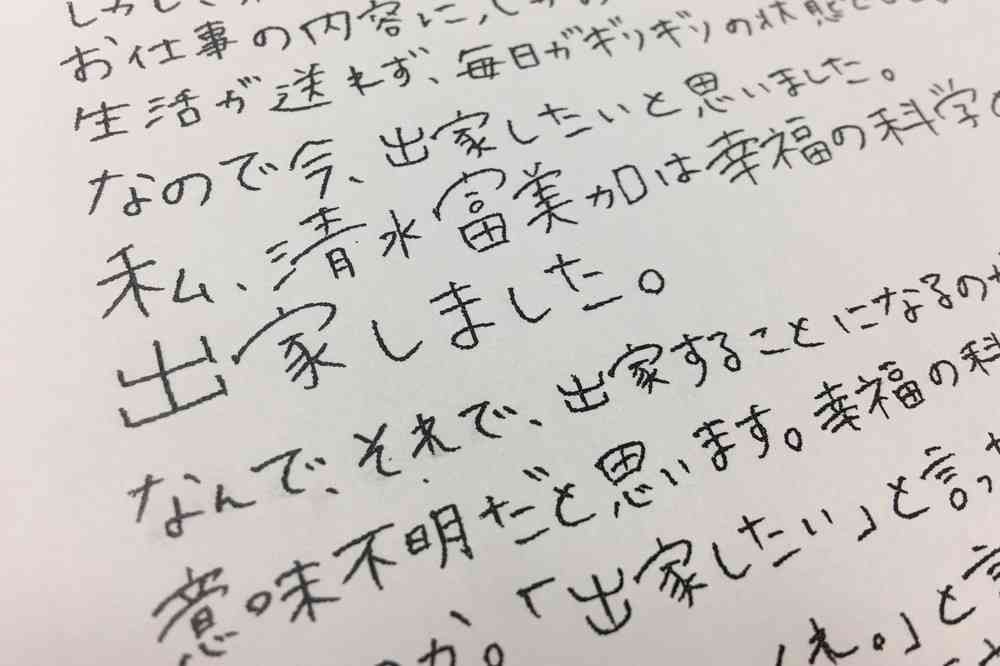 お仕事の内容に、
生活が送れず、毎日がギリギリの状態でし
なので今、出家したいと思いました。
私、清水富美加は幸福の科学の
出家しました。
なんで、それで、出家することになるのか
意味不明だと思います。幸福の科
か。「出家したい」と言っ
え。」と言